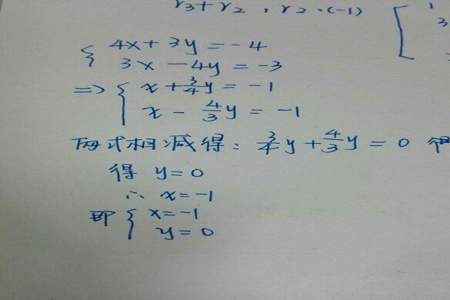 r₃+r₂, r₂·(-1) [ 1
3
{ 4x+3y=-4
3x-4y=-3
=> { x+3/4y=-1
x-4/3y=-1
两式相减得: 3/4y+4/3y=0
得 y=0
∴ x=-1
即 { x=-1
y=0